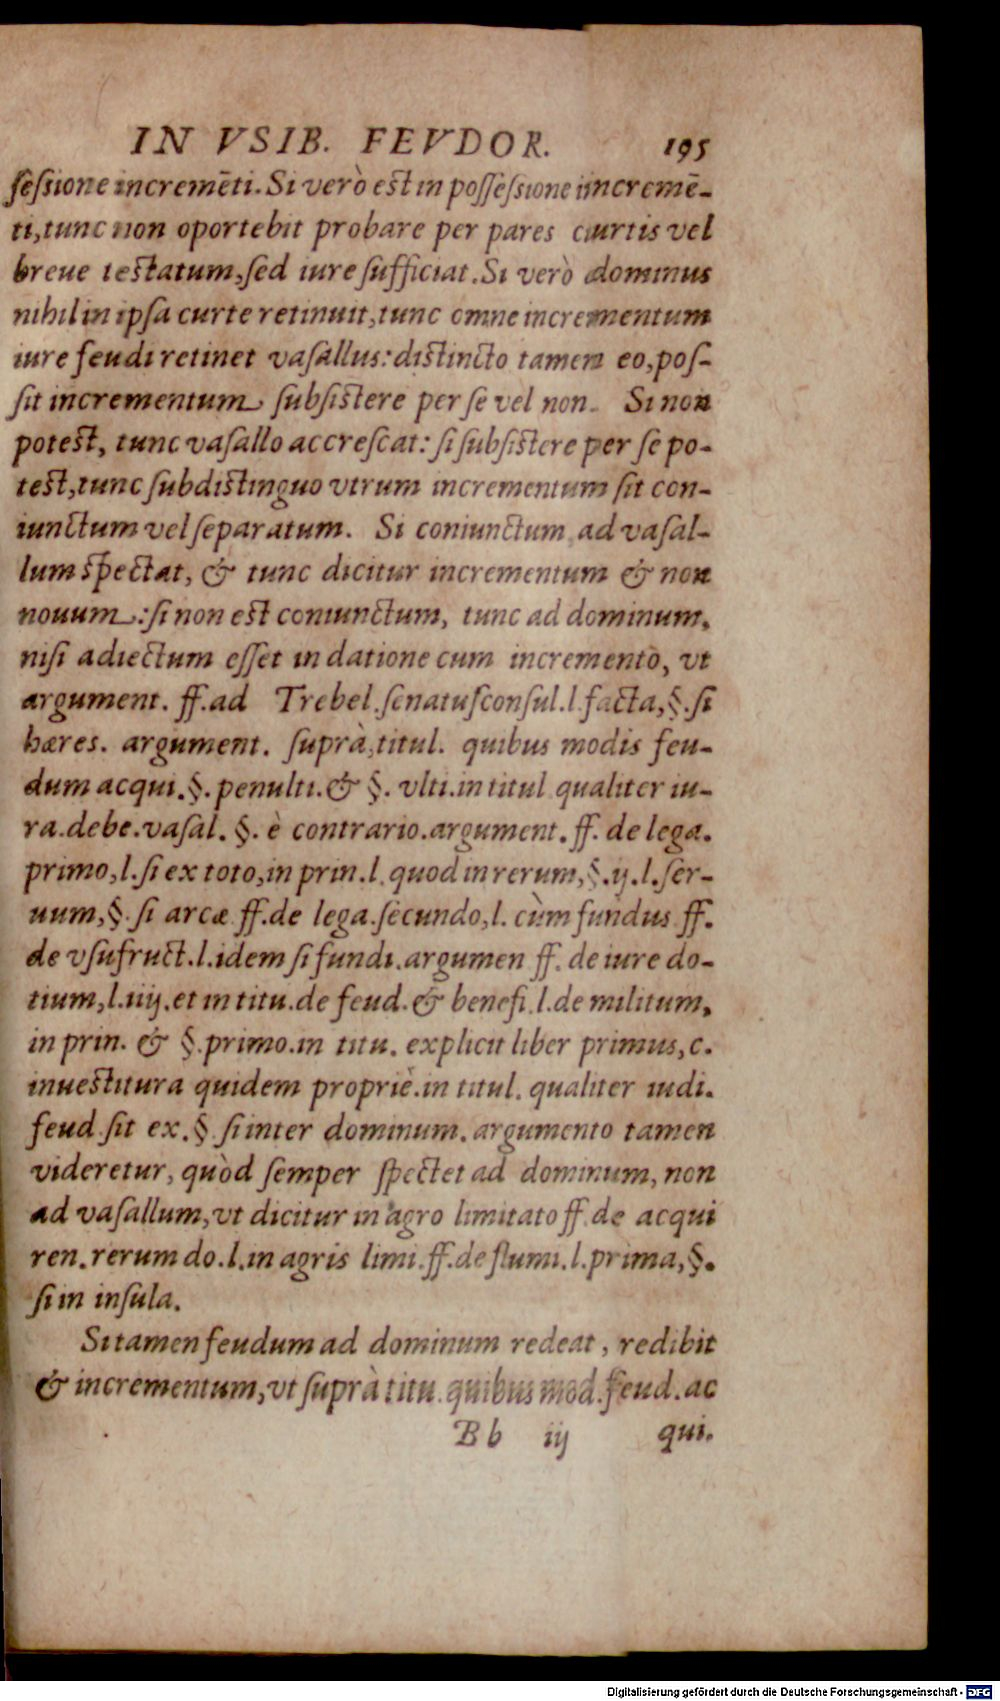 IN VSIB. FEVDOR. 195
ſeſsione incremēti. Si verò eſt in poſſeſsione incremē-
ti, tunc non oportebit probare per pares curtis vel
breue teſtatum, ſed iure ſufficiat. Si verò dominus
nihil in ipſa curte retinuit, tunc omne incrementum
iure feudi retinet vaſallus: diſtincto tamen eo, poſ-
ſit incrementum ſubſiſtere per ſe vel non. Si non
poteſt, tunc vaſallo accreſcat: ſi ſubſiſtere per ſe po-
teſt, tunc ſubdiſtinguo vtrum incrementum ſit con-
iunctum vel ſeparatum. Si coniunctum ad vaſal-
lum ſpectat, & tunc dicitur incrementum & non
nouum: ſi non eſt coniunctum, tunc ad dominum,
niſi adiectum eſſet in datione cum incremento, vt
argument. ff. ad Trebel. ſenatuſconſul. l. facta, §. ſi
hæres. argument. ſuprà, titul. quibus modis feu-
dum acqui. §. penulti. & §. vlti. in titul qualiter iu-
ra. debe. vaſal. §. è contrario. argument. ff. de lega.
primo, l. ſi ex toto, in prin. l. quod in rerum, §. ij. l. ſer-
uum, §. ſi arcæ ff. de lega. ſecundo, l. cùm fundus ff.
de vſufruct. l. idem ſi fundi. argumen ff. de iure do-
tium, l. iiij. et in titu. de feud. & benefi. l. de militum,
in prin. & §. primo. in titu. explicit liber primus, c.
inueſtitura quidem propriè. in titul. qualiter iudi.
feud. ſit ex. §. ſi inter dominum. argumento tamen
videretur, quòd ſemper ſpectet ad dominum, non
ad vaſallum, vt dicitur in agro limitato ff. de acqui
ren. rerum do. l. in agris limi. ff. de flumi. l. prima, §.
ſi in inſula.
Si tamen feudum ad dominum redeat, redibit
& incrementum, vt ſuprà titu. quibus mod. feud. ac
B b iij qui.
Digitalisierung gefördert durch die Deutsche Forschungsgemeinschaft - DFG